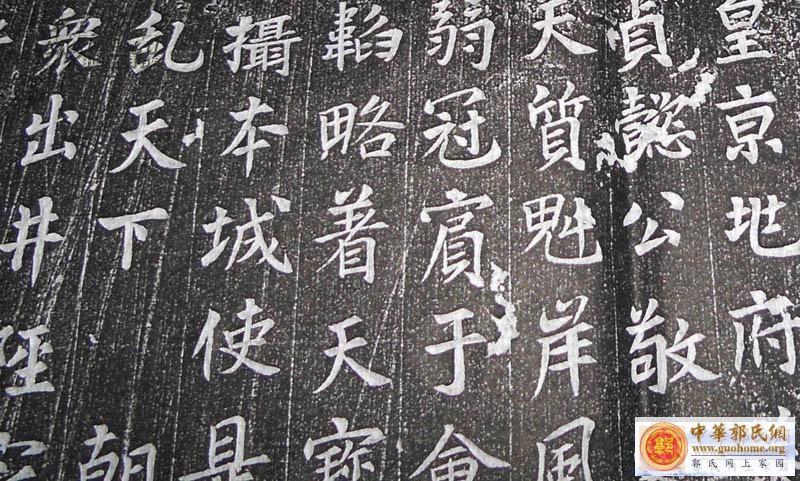 皇京地府
貞懿公敬
天質魁岸風
弱冠賔于會
韜略着天寳
攝本城使是
乱天下 朝
衆出井陘
中華郭氏網
www.guohome.org
郭氏网上家园